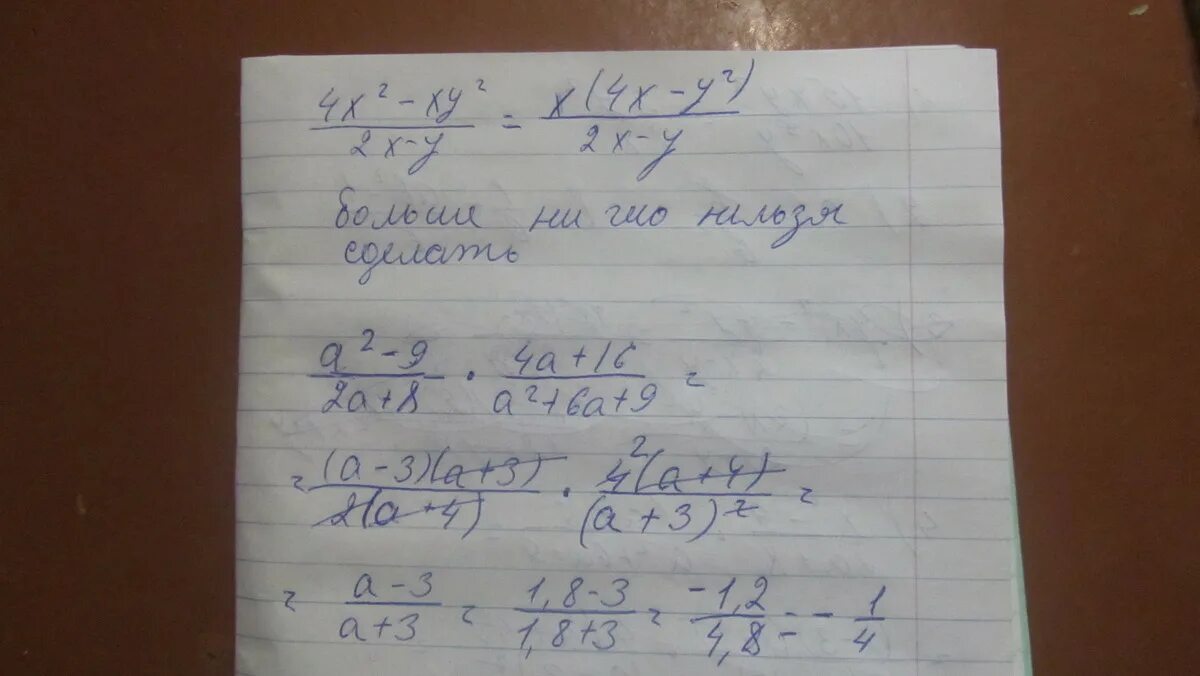 4x² - xy² / 2x-y = x(4x - y²) / 2x-y
больше ни что нельзя
сделать
a² - 9 / 2a+8 · 4a+16 / a²+6a+9 =
= (a-3)(a+3) / 2(a+4) · 4²(a+4) / (a+3)² =
= a-3 / a+3 = 1,8-3 / 1,8+3 = -1,2 / 4,8 = - 1/4